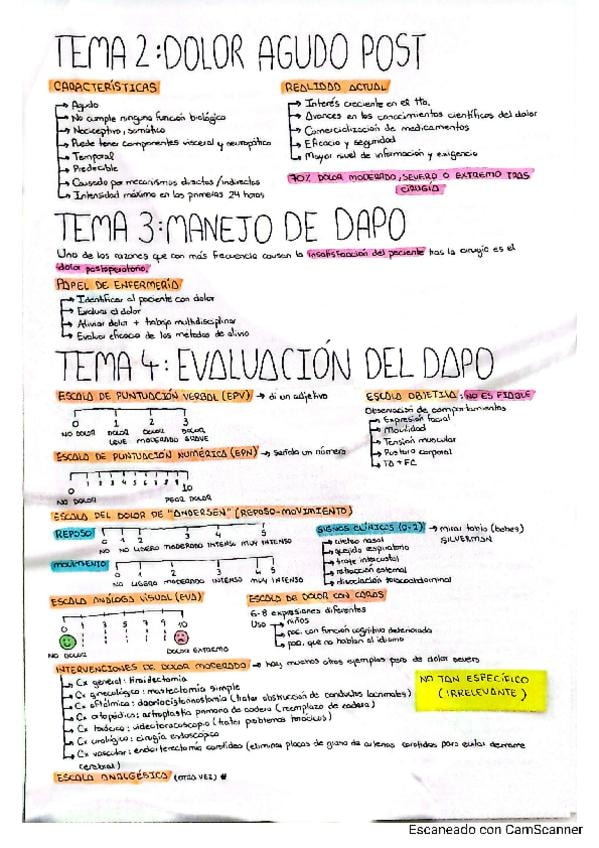 TEMA 2: DOLOR AGUDO POST
CARACTERÍSTICAS
Agudo
No cumple ninguna función biológica
Nociceptivo, somático
Puede tener componentes visceral y neuropático
Temporal
Predecible
Causado por mecanismos directos / indirectos
Intensidad máxima en las primeras 24 horas
REALIDAD ACTUAL
Interés creciente en el tto.
Avances en los conocimientos científicos del dolor
Comercialización de medicamentos
Eficacia y seguridad
Mayor nivel de información y exigencia
70% DOLOR MODERADO, SEVERO O EXTREMO TRAS
CIRUGÍA
TEMA 3: MANEJO DE DAPO
Una de las razones que con más frecuencia causan la insatisfacción del paciente tras la cirugía es el
dolor postoperatorio.
PAPEL DE ENFERMERÍA
Identificar al paciente con dolor
Evaluar el dolor
Aliviar dolor + trabajo multidisciplinar
Evaluar eficacia de los métodos de alivio
TEMA 4: EVALUACIÓN DEL DAPO
ESCALA DE PUNTUACIÓN VERBAL (EPV) → di un adjetivo
0 1 2 3
NO DOLOR DOLOR LEVE DOLOR MODERADO DOLOR GRAVE
ESCALA DE PUNTUACIÓN NUMÉRICA (EPN) → señala un número
0 1 2 3 4 5 6 7 8 9 10
NO DOLOR PEOR DOLOR
ESCALA OBJETIVA: NO ES FIABLE
Observación de comportamientos
Expresión facial
Movilidad
Tensión muscular
Postura corporal
TA + FC
ESCALA DEL DOLOR DE "ANDERSEN" (REPOSO-MOVIMIENTO)
REPOSO 0 1 2 3 4 5
NO NO LIGERO MODERADO INTENSO MUY INTENSO
MOVIMIENTO 0 1 2 3 4 5
NO LIGERO MODERADO INTENSO MUY INTENSO
SIGNOS CLÍNICOS (0-2) → mirar tabla (bebés)
SILVERMAN
aleteo nasal
quejido espiratorio
tiraje intercostal
retracción esternal
disociación toracoabdominal
ESCALA ANÁLOGA VISUAL (EVA)
0 1 3 5 7 9 10
NO DOLOR DOLOR EXTREMO
ESCALA DE DOLOR CON CARAS
6-8 expresiones diferentes
Uso → niños
pac. con función cognitiva deteriorada
pac. que no hablan el idioma
INTERVENCIONES DE DOLOR MODERADO → hay muchos otros ejemplos para de dolor severo
Cx general: tiroidectomía
Cx ginecológica: mastectomía simple
Cx oftálmica: daoriocistorinostomía (tratar obstrucción de conductos lacrimales)
Cx ortopédica: artroplastia primaria de cadera (reemplazo de cadera)
Cx torácica: videotoracoscopia (tratar problemas torácicos)
Cx urológica: cirugía endoscópica
Cx vascular: endarterectomía carotídea (eliminar placas de grasa de arterias carótidas para evitar derrame
cerebral)
NO TAN ESPECÍFICO
(IRRELEVANTE)
ESCALA ANALGÉSICA (OTRA VEZ) #
Escaneado con CamScanner